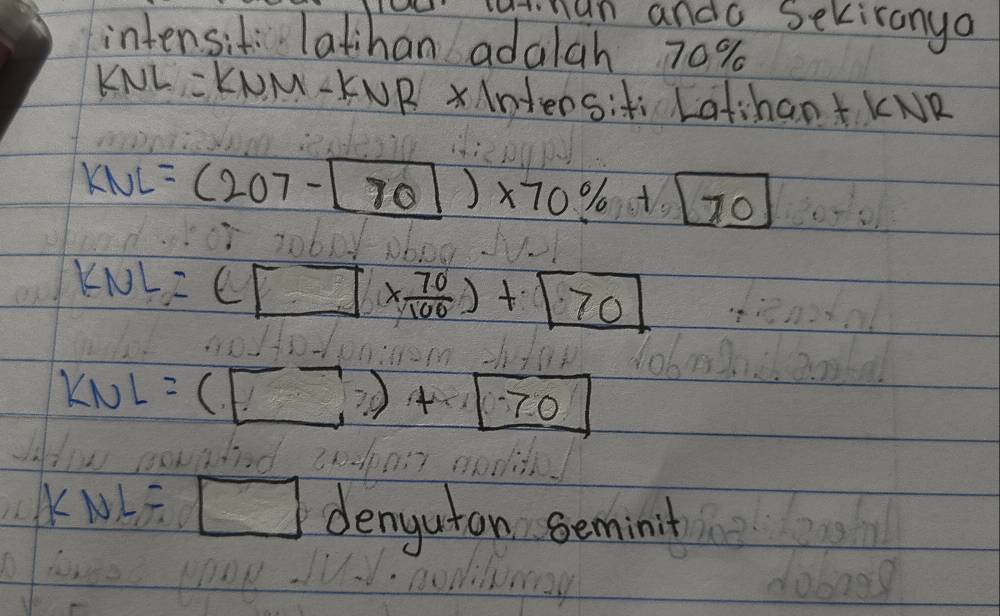 latihan anda Sekiranya
intensiti latihan adalah 70%
KNL = KNM - KNR × Intensiti Latihan + KNR
KNL = (207 - 70 ) × 70% + 70
KNL = ( × 70/100 ) + 70
KNL = ( ) + 70
KNL = denyutan seminit